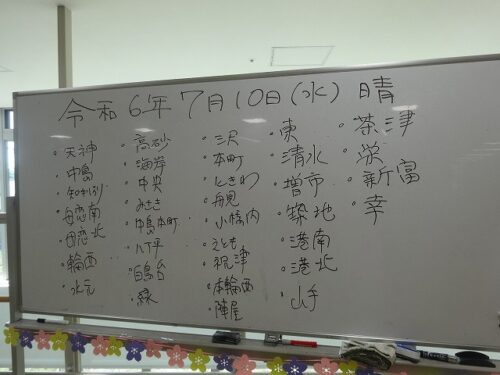 令和6年7月10日(水) 晴
・天神
・中島
・知利別
・母恋南
・母恋北
・輪西
・水元
・高砂
・海岸
・中央
・みさき
・中島本町
・八丁平
・白鳥台
・緑
・沢
・本町
・ときわ
・舟見
・小橋内
・えとも
・祝津
・本輪西
・陣屋
・東
・清水
・増市
・築地
・港南
・港北
・山手
・茶津
・栄
・新富
・幸